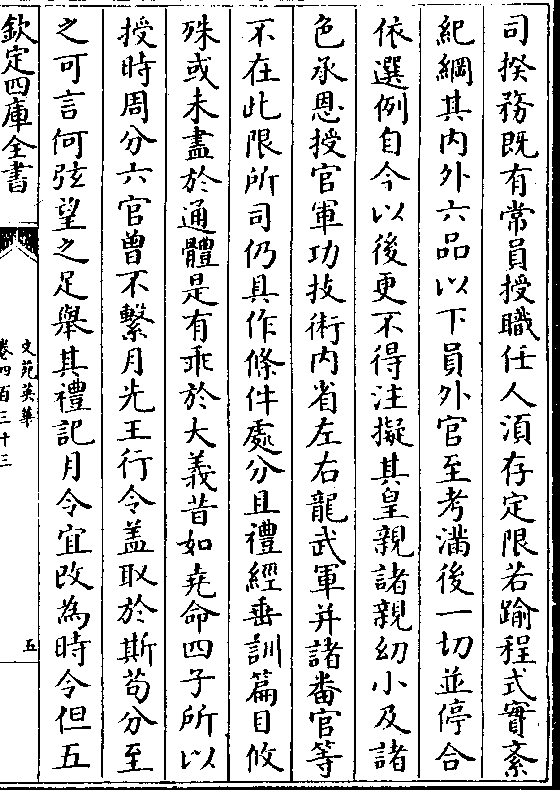 司揆務既有常員授職任人湏存定限若踰程式實紊
紀綱其内外六品以下員外官至考滿後一切並停合
依選例自今以後更不得注擬其皇親諸親幼小及諸
色承恩授官軍功技術内省左右龍武軍并諸畨官等
不在此限所司仍具作條件處分且禮經垂訓篇目攸
殊或未盡於通體是有乖於大義昔如堯命四子所以
授時周分六官曾不繫月先王行令盖取於斯苟分至
之可言何弦望之足舉其禮記月令宜改為時令但五
欽定四庫全書
文苑英華
卷四百三十三
五